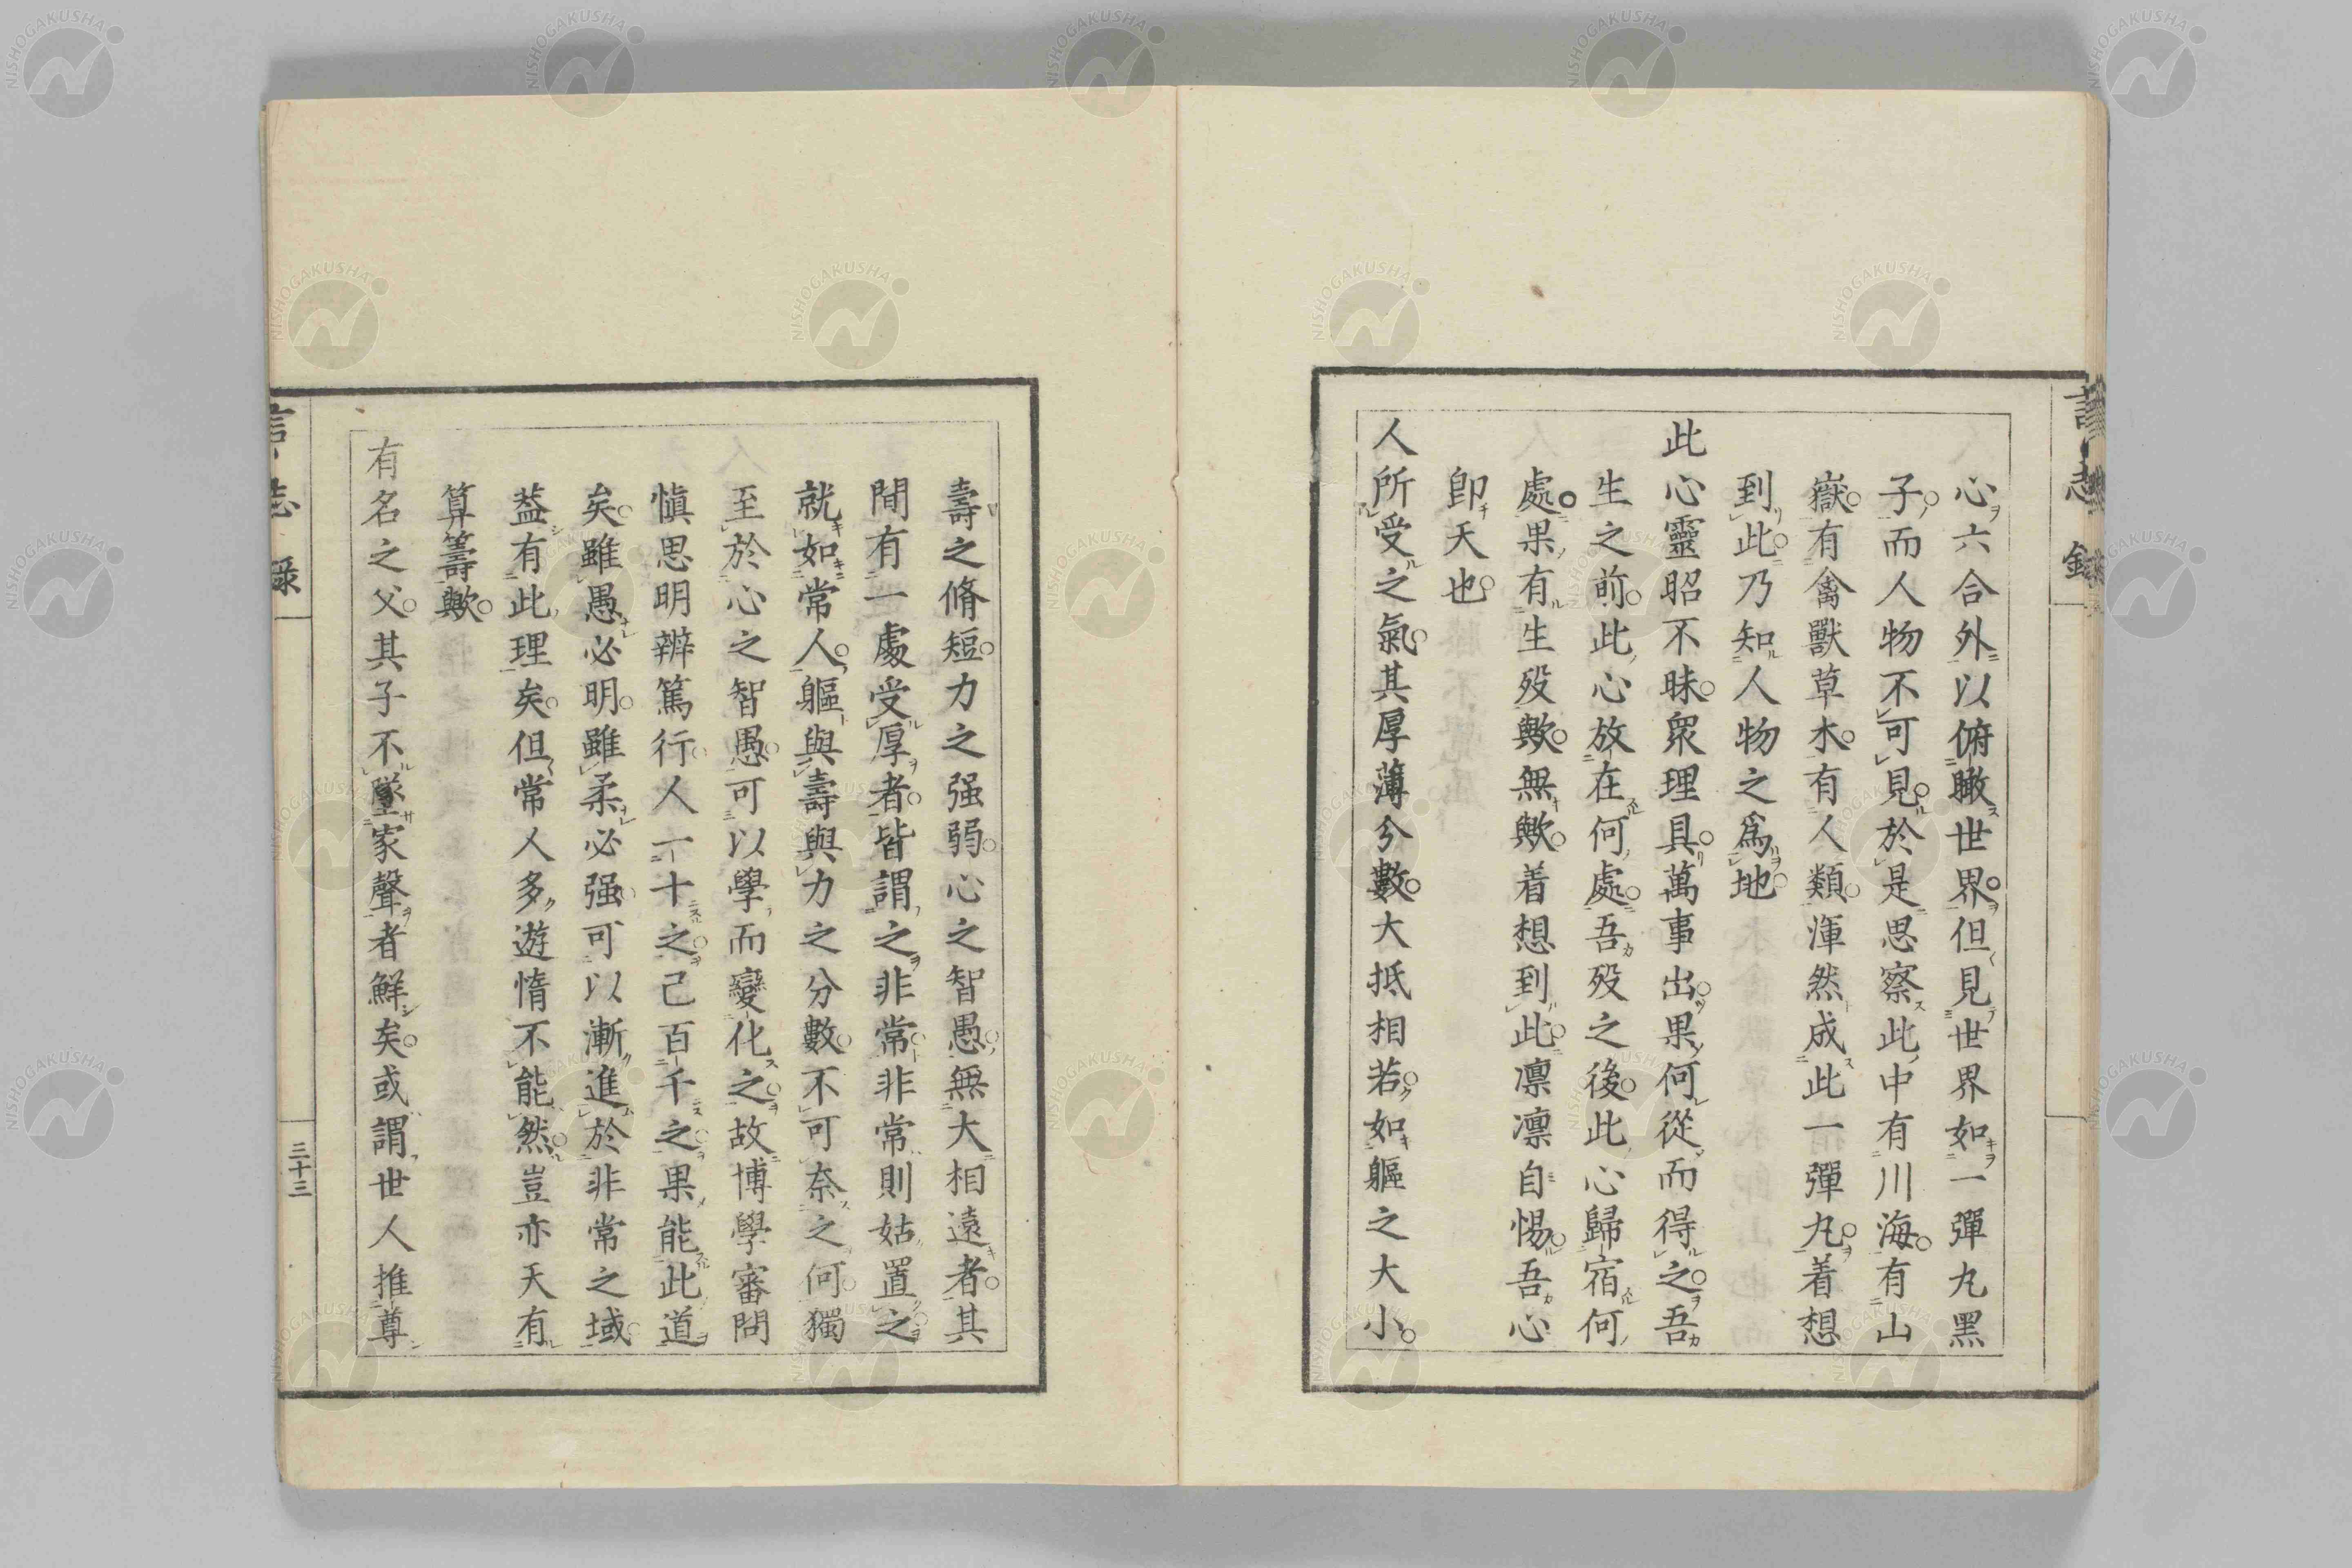 言志録
心六合外以俯瞰世界但見世界如一彈丸黑
子而人物不可見於是思察此中有川海有山
嶽有禽獸草木有人類渾然成此一彈丸着想
到此乃知人物之爲地
此心靈昭不昧衆理具萬事出果何從而得之吾
生之前此心放在何處吾歿之後此心歸宿何
處果有生歿歟無歟着想到此凛凛自惕吾心
卽天也
人所受之氣其厚薄分數大抵相若如軀之大小
壽之脩短力之强弱心之智愚無大相遠者其
間有一處受厚者皆謂之非常非常則姑置之
就如常人軀與壽與力之分數不可奈之何獨
至於心之智愚可以學而變化之故博學審問
愼思明辨篤行人一十之己百千之果能此道
矣雖愚必明雖柔必强可以漸進於非常之域
葢有此理矣但常人多遊惰不能然豈亦天有
算籌歟
有名之父其子不墜家聲者鮮矣或謂世人推尊
言志録
三十三
NISHOGAKUSHA